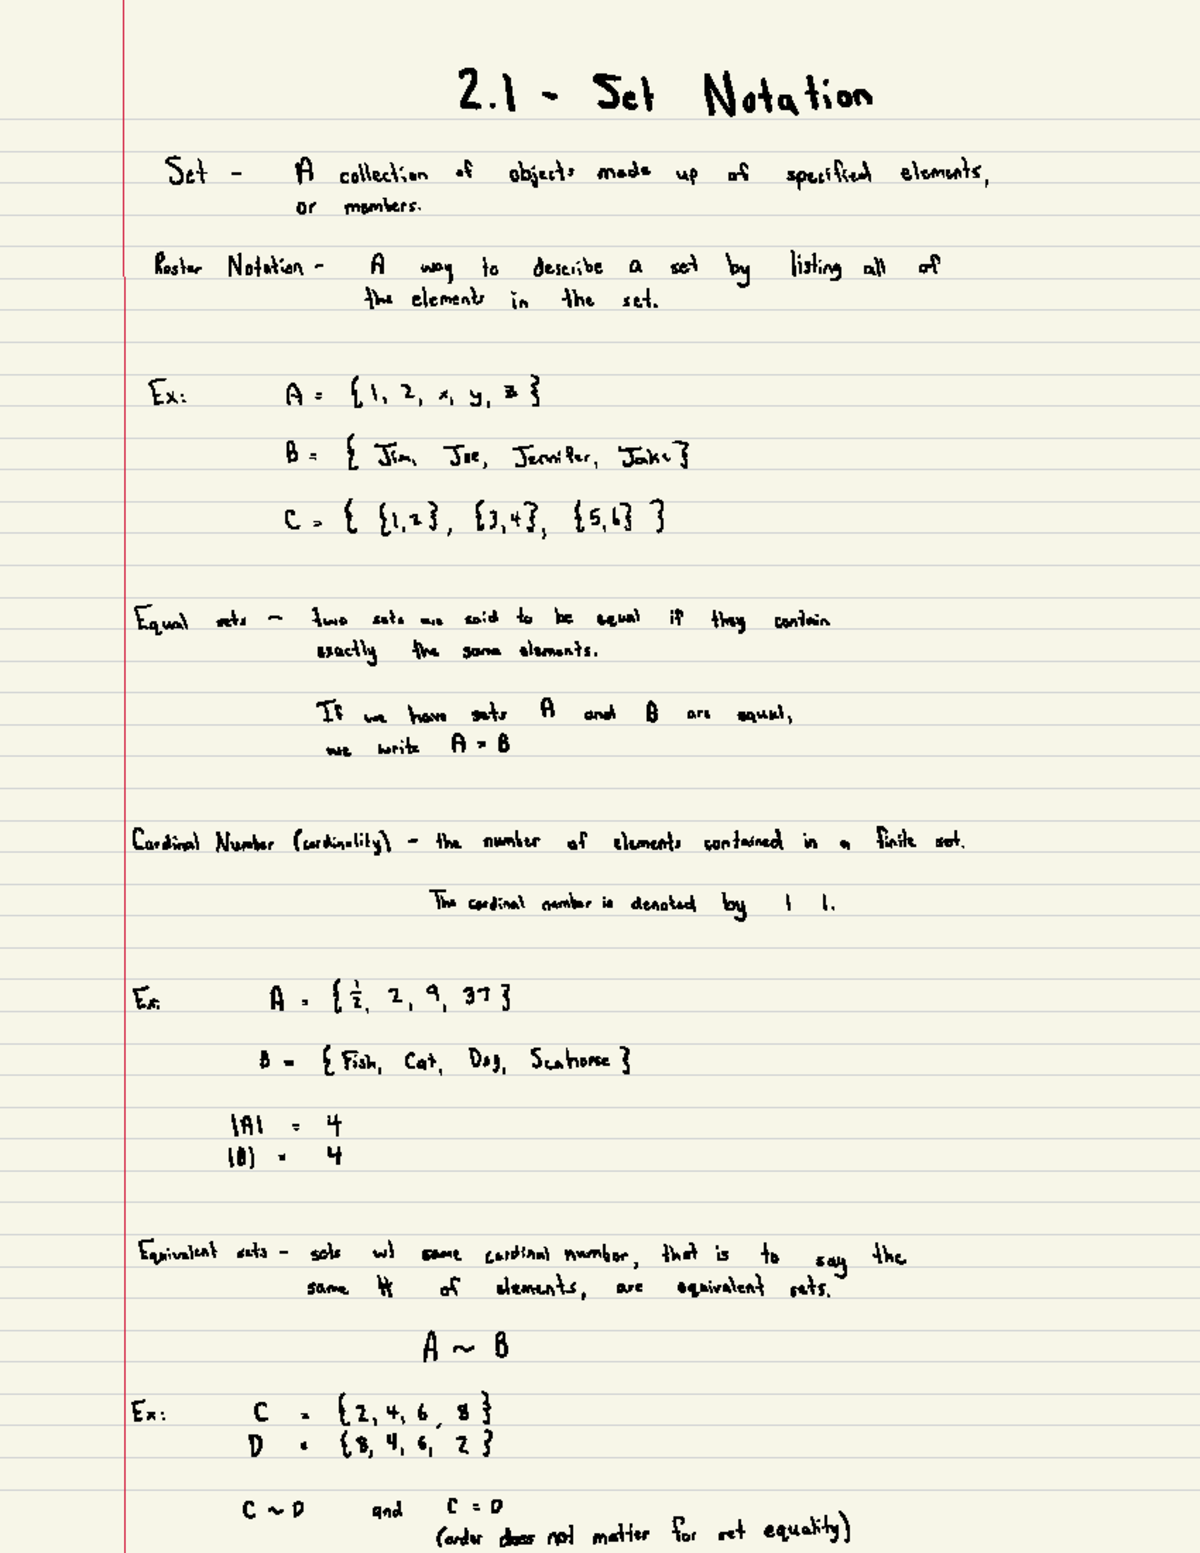 2.1 - Set Notation
Set - A collection of objects made up of specified elements,
or members.
Roster Notation - A way to describe a set by listing all of
the elements in the set.
Ex: A = {1, 2, x, y, z}
B = { Jim, Joe, Jennifer, Jake }
C = { {1,2}, {3,4}, {5,6} }
Equal sets - two sets are said to be equal if they contain
exactly the same elements.
If we have sets A and B are equal,
we write A = B
Cardinal Number (cardinality) - the number of elements contained in a finite set.
The cardinal number is denoted by | |.
Ex: A = { 1/2, 2, 9, 37 }
B = { Fish, Cat, Dog, Seahorse }
|A| = 4
|B| = 4
Equivalent sets - sets w/ same cardinal number, that is to say the
same # of elements, are equivalent sets.
A ~ B
Ex: C = {2, 4, 6, 8}
D = {8, 4, 6, 2}
C ~ D and C = D
(order does not matter for set equality)